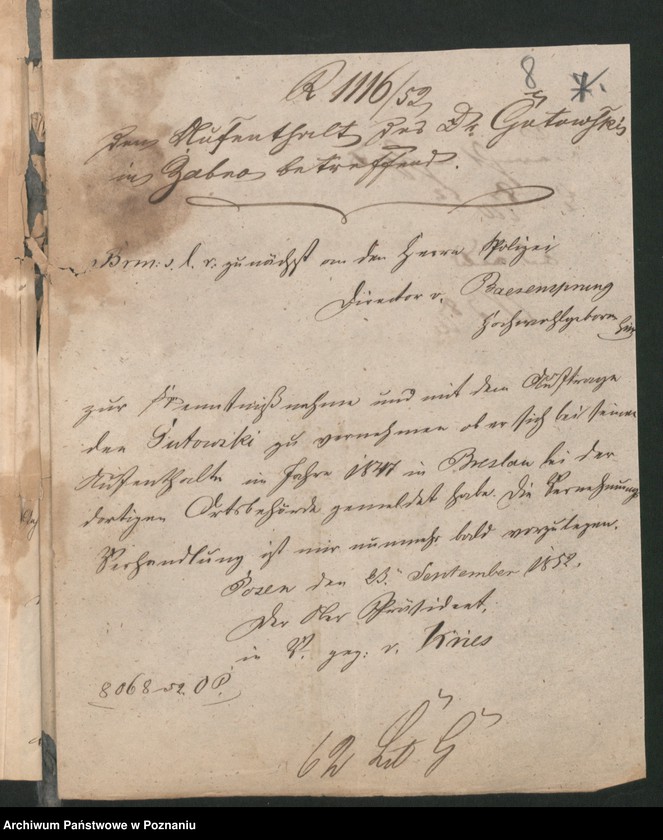 8
R 1116/52
Den Aufenthalt des Dr. Gutowski
in Zabno betreffend.
Brm: s. l. r. zunächst an den Herrn Polizei
Director v. Baerensprung
Hochwohlgeboren
hier
zur Kenntnißnahme und mit dem Auftrage
den Gutowski zu vernehmen ob er sich bei seinem
Aufenthalte im Jahre 1847 in Breslau bei der
dortigen Ortsbehörde gemeldet habe. Die Vernehmungs
Verhandlung ist mir nunmehr bald vorzulegen.
Posen den 23. September 1852.
Der Ober Präsident.
in V. gez: v. Kries
8068 52. O P.
62 Lit G
Archiwum Państwowe w Poznaniu